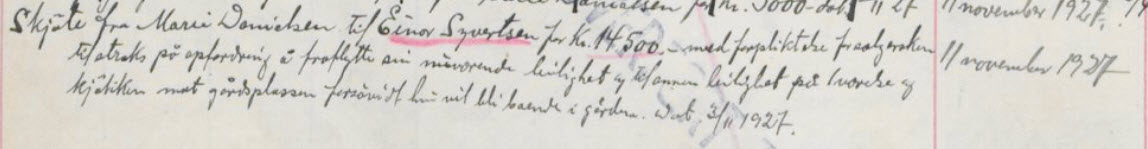 kr. 5000.- dat. /11 27 11 november 1927.
Skjöte fra Marie Danielsen til Einar Syvertsen for kr. 14.500.- med forpliktelse for selgersken
til straks på opfordring å fraflytte sin nuværende leilighet og til annen leilighet på kvarts og
kjökken mot gårdsplassen forsåvidt hun vil bli boende i gården. dat. 3/11 1927.
11 november 1927